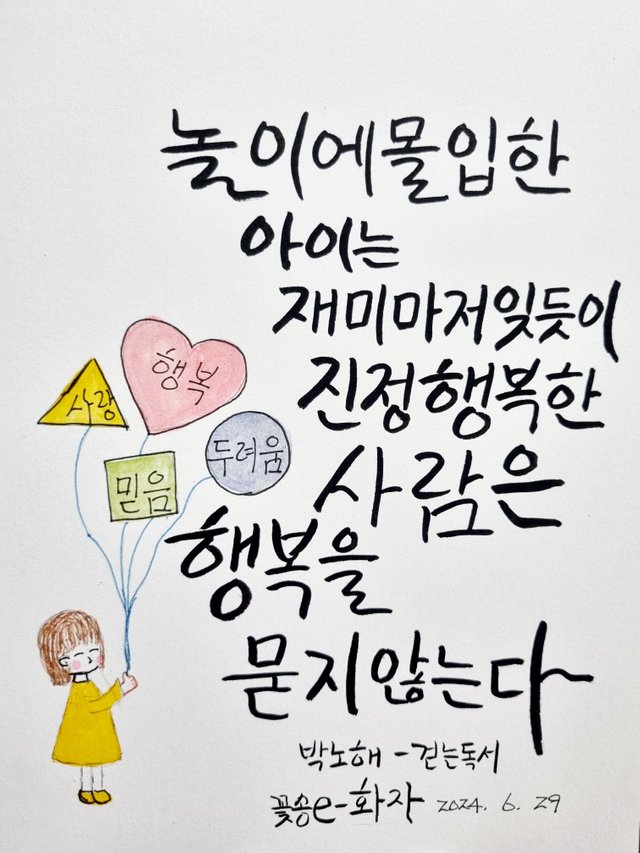 놀이에몰입한
아이는
재미마저잊듯이
진정행복한
사람은
행복을
묻지않는다
행복
사랑
두려움
믿음
박노해 - 걷는독서
꽃송e-화자 2024. 6. 29